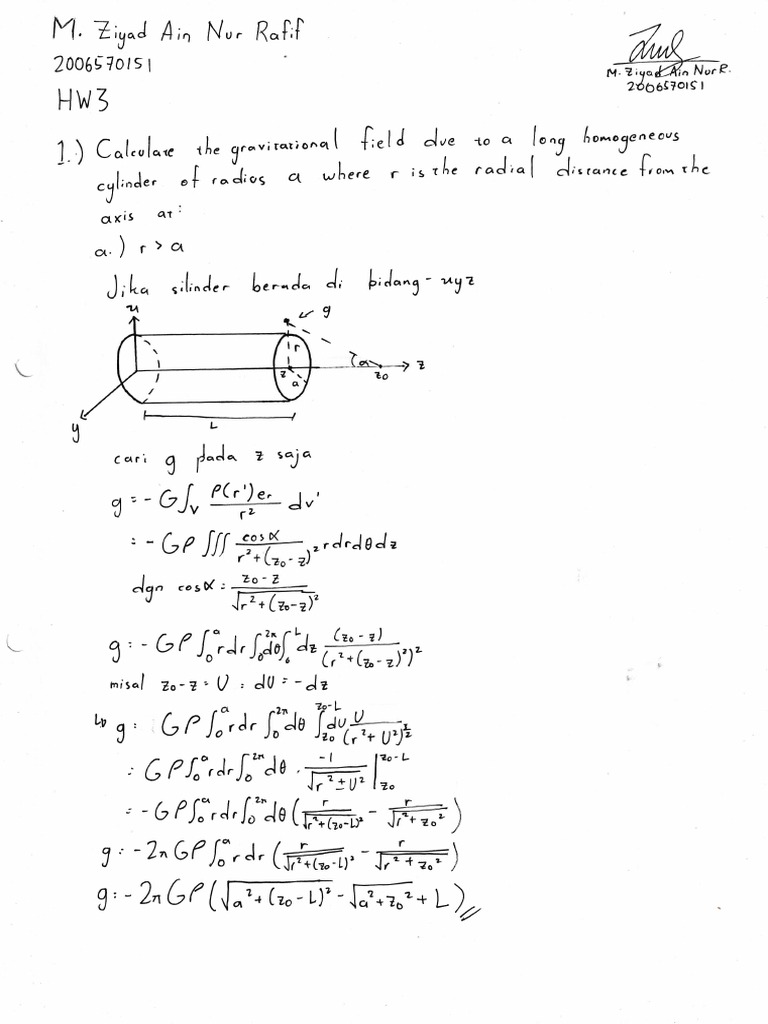 M. Ziyad Ain Nur Rafif
2006570151
M. Ziyad Ain Nur R.
2006570151
HW3
1.) Calculate the gravitational field due to a long homogeneous
cylinder of radius a where r is the radial distance from the
axis at:
a.) r > a
Jika silinder berada di bidang-xyz
x
g
r
α
z
z
a
z₀
y
L
cari g pada z saja
g = -G∫ᵥ ρ(r')eᵣ/r² dv'
= -Gρ∭ cosα/(r²+(z₀-z)²) rdrdθdz
dgn cosα = (z₀-z)/√(r²+(z₀-z)²)
g = -Gρ∫₀ᵃ rdr∫₀²ᵖⁱ dθ∫₀ᴸ dz (z₀-z)/(r²+(z₀-z)²)²
misal z₀-z = U = dU = -dz
↳ g = Gρ∫₀ᵃ rdr ∫₀²ᵖⁱ dθ ∫_{z₀}^{z₀-L} dU U/(r²+U²)^{3/2}
= Gρ∫₀ᵃ rdr∫₀²ᵖⁱ dθ . -1/√(r²+U²) |_{z₀}^{z₀-L}
= -Gρ∫₀ᵃ rdr∫₀²ᵖⁱ dθ (r/√(r²+(z₀-L)²) - r/√(r²+z₀²))
g = -2πGρ∫₀ᵃ rdr (r/√(r²+(z₀-L)²) - r/√(r²+z₀²))
g = -2πGρ(√(a²+(z₀-L)²) - √(a²+z₀²) + L)